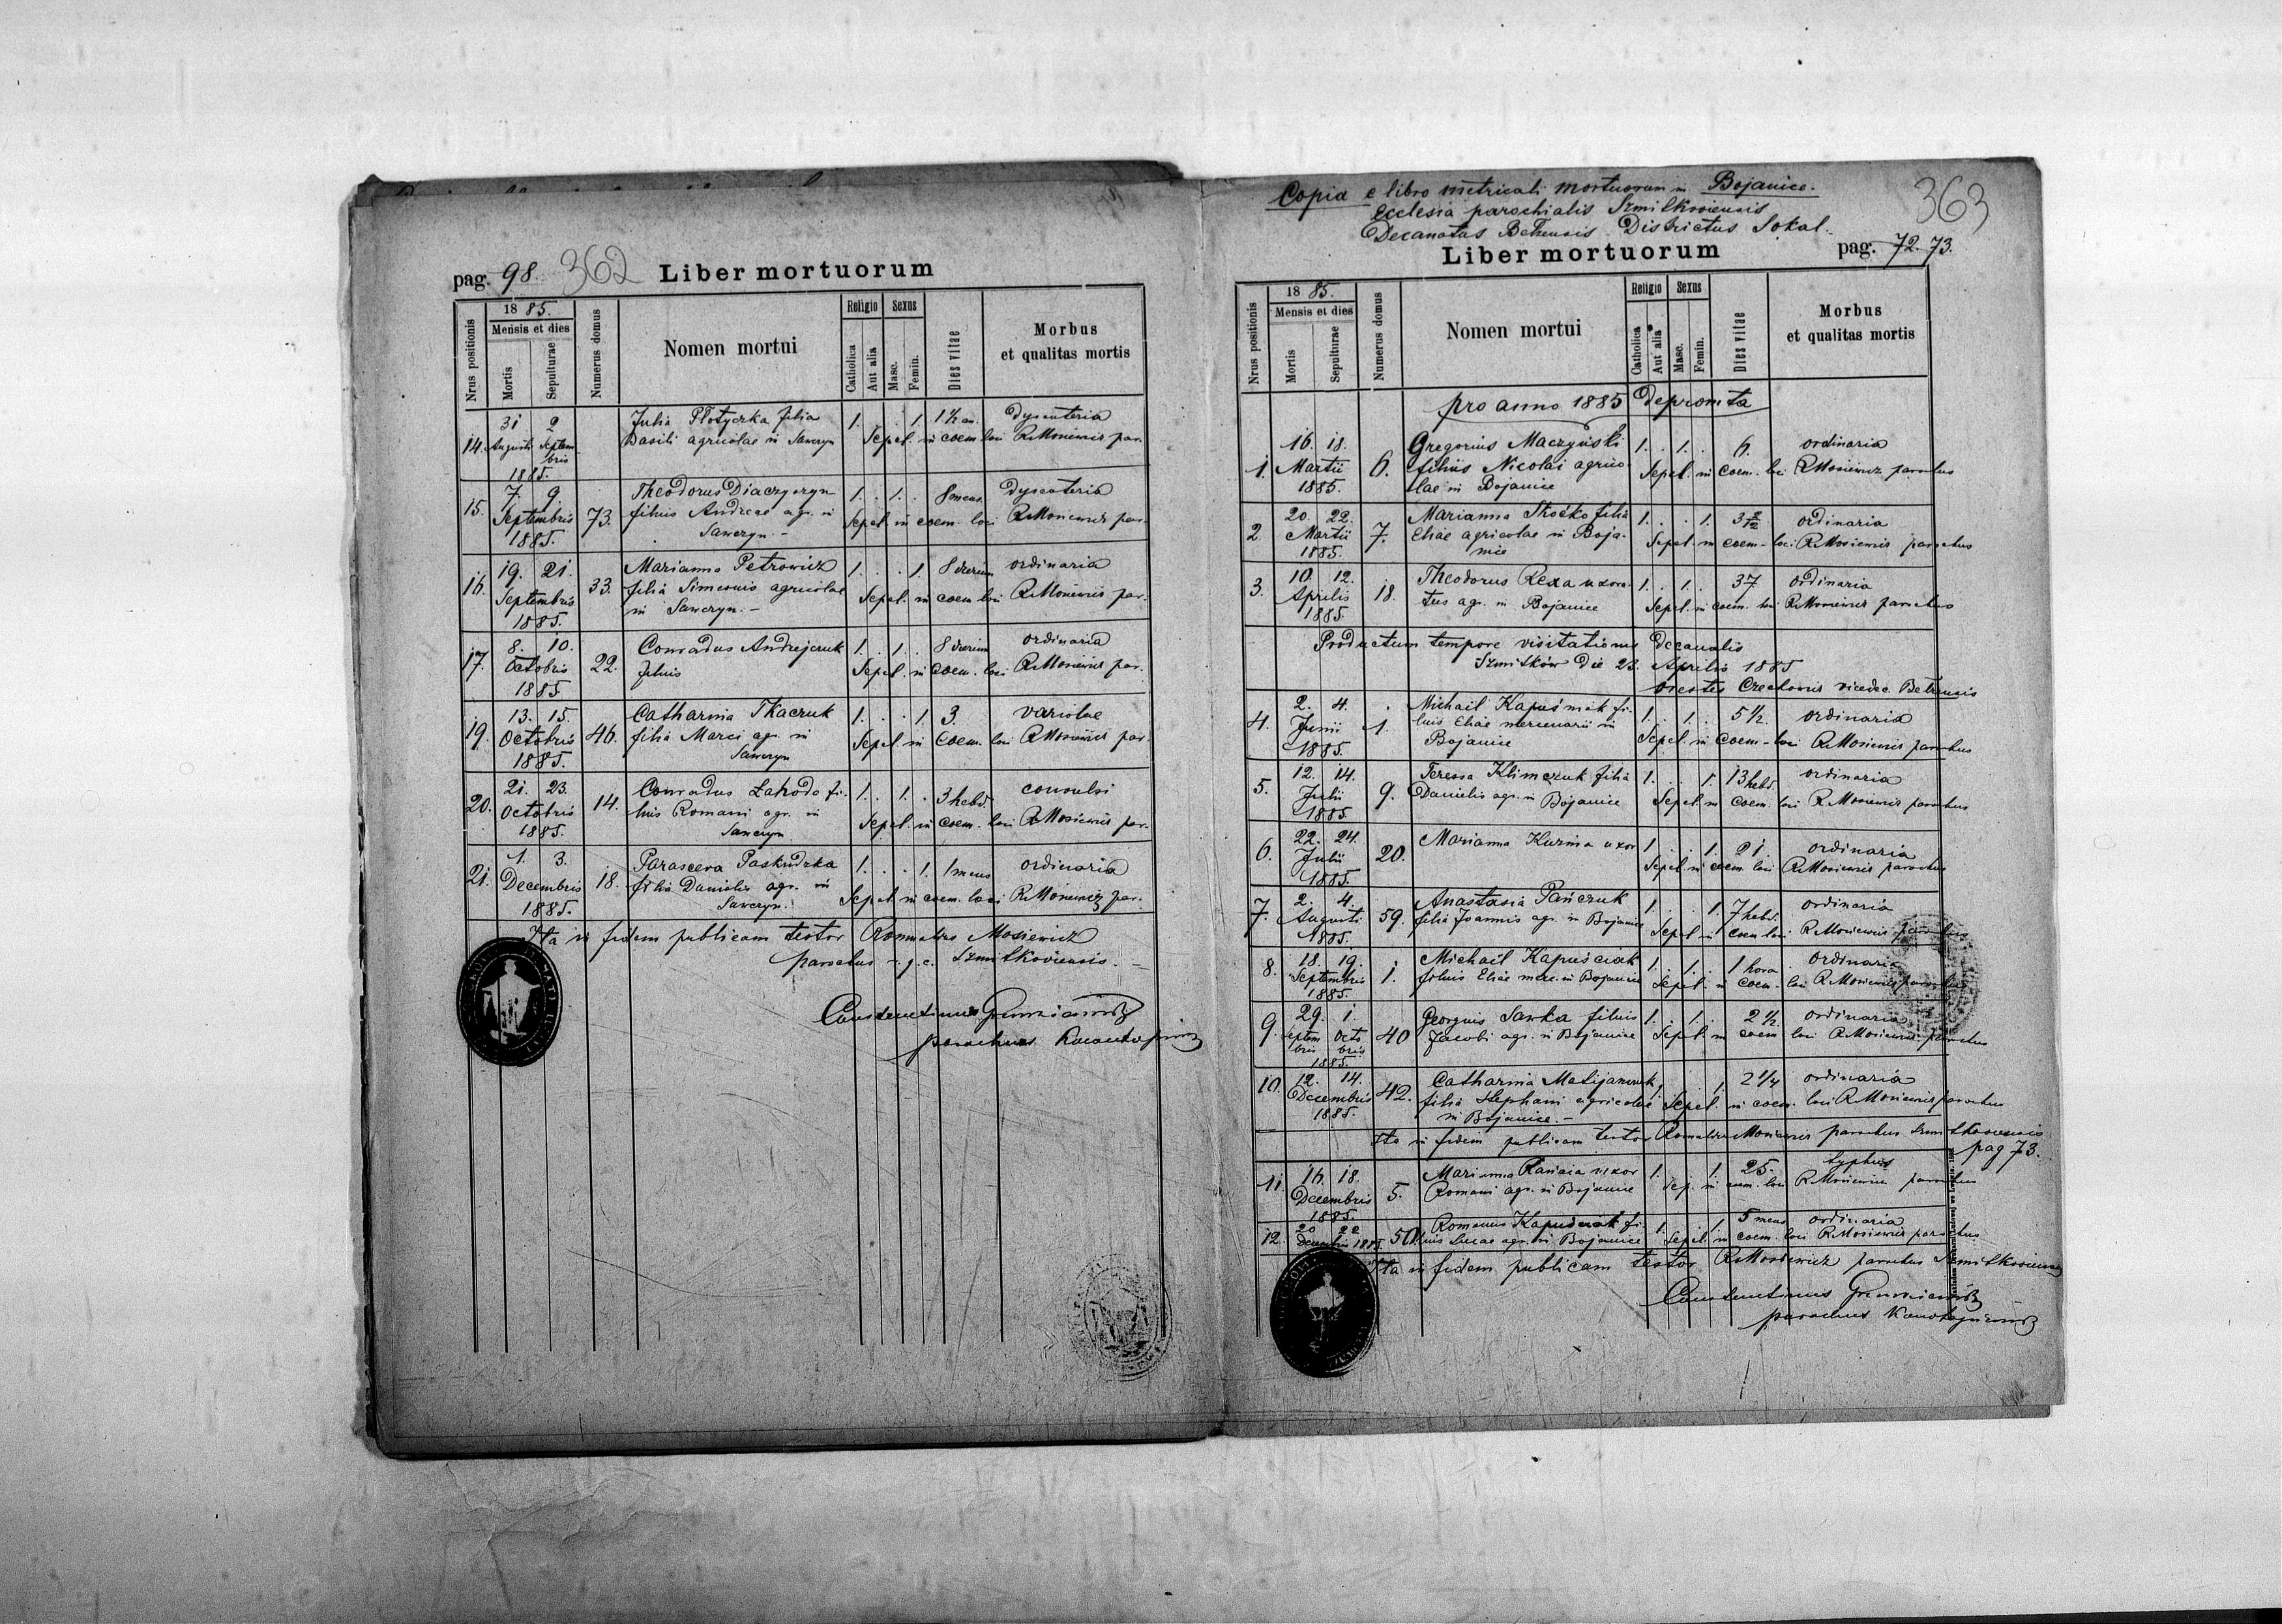 pag. 98. 362 Liber mortuorum
Nrus positionis
1885.
Mensis et dies
Mortis
Sepulturae
Numerus domus
Nomen mortui
Religio
Catholica
Aut alia
Sexus
Masc.
Femin.
Dies vitae
Morbus
et qualitas mortis
14. 31 Augusti 2 Septembris 1885.
Julia Plotyczka filia 1. . . 1. 1½ an. dysenteria
Basili agricolae in Sawczyn Sepel. in coem. loci R Mosiewicz par.
15. 7. 9. Septembris 1885. 73.
Theodorus Diaczyszyn 1. . 1. . 8 mens. dysenteria
filius Andreae agr. in Sepel. in coem. loci R Mosiewicz par.
Sawczyn. -
16. 19. 21. Septembris 1885. 33.
Marianna Petrowicz 1. . . 1. 8 dierum ordinaria
filia Simeonis agricolae Sepel. in coem loci R Mosiewicz par.
in Sawczyn. -
17. 8. 10. Octobris 1885 22.
Conradus Andrejczuk 1. . 1. . 8 dierum ordinaria
filius Sepel. in coem. loci R Mosiewicz par.
19. 13. 15. Octobris 1885. 46.
Catharina Tkaczuk 1. . . 1. 3. variolae
filia Marci agr. in Sepel. in coem. loci R Mosiewicz par.
Sawczyn
20. 21. 23. Octobris 1885. 14.
Conradus Zahoda fi- 1. . 1. . 3 hebd. convulsi
lius Romani agr. in Sepel. in coem. loci R Mosiewicz par.
Sawczyn
21. 1. 3. Decembris 1885. 18.
Parasceva Paskudzka 1. . . 1. 1 mens ordinaria
filia Danielis agr. in Sepel. in coem. loci R Mosiewicz par.
Sawczyn.
Ita in fidem publicam testor Romualdus Mosiewicz
parochus r. g. c. Szmitkoviensis. -
Constantinus
parochus
Copia e libro metricali mortuorum in Bojanice.
Ecclesia parochialis Szmitkoviensis
Decanatus Belzensis Districtus Sokal.
363
Liber mortuorum pag. 72. 73.
Nrus positionis
1885.
Mensis et dies
Mortis
Sepulturae
Numerus domus
Nomen mortui
Religio
Catholica
Aut alia
Sexus
Masc.
Femin.
Dies vitae
Morbus
et qualitas mortis
pro anno 1885 depromta
1. 16. 18. Martii 1885. 6.
Gregorius Maczyński 1. . 1. . 6. ordinaria
filius Nicolai agrico- Sepel. in coem. loci R Mosiewicz parochus
lae in Bojanice
2. 20. 22. Martii 1885. 7.
Marianna Stocko filia 1. . . 1. 3 2/12 ordinaria
Eliae agricolae in Boja- Sepel. in coem. loci R Mosiewicz parochus
nice
3. 10. 12. Aprilis 1885. 18.
Theodorus Rexa uxora- 1. . 1. . 37 ordinaria
tus agr. in Bojanice Sepel. in coem. loci R Mosiewicz parochus
Productum tempore visitationis decanalis
Szmitków die 23. Aprilis 1885
Orestes Czechowicz vicedec. Belzensis
4. 2. 4. Junii 1885. 1.
Michail Kapuśniak fi- 1. . 1. . 5½ ordinaria
lius Eliae mercenarii in Sepel. in coem. loci R Mosiewicz parochus
Bojanice
5. 12. 14. Julii 1885 9.
Teressa Klimczuk filia 1. . . 1. 13 hebd. ordinaria
Danielis agr. in Bojanice Sepel. in coem. loci R Mosiewicz parochus
6. 22. 24. Julii 1885. 20.
Marianna Kuzma uxor 1. . . 1. 21. ordinaria
Sepel. in coem. loci R Mosiewicz parochus
7. 2. 4. Augusti 1885. 59.
Anastasia Pańczuk 1. . . 1. 7 hebd. ordinaria
filia Joannis agr. in Bojanice Sepel. in coem loci R Mosiewicz parochus
8. 18. 19. Septembris 1885. 1.
Michail Kapuściak 1. . 1. . 1 hora ordinaria
filius Eliae merc. in Bojanice Sepel. in coem. loci R Mosiewicz parochus
9. 29. Septembris 1. Octobris 1885. 40
Georgius Sawka filius 1. . 1. . 2½ ordinaria
Jacobi agr. in Bojanice Sepel. in coem loci R Mosiewicz parochus
10. 12. 14. Decembris 1885. 42.
Catharina Matijańczuk 1. . . 1. 2¼ ordinaria
filia Stephani agricolae Sepel. in coem. loci R Mosiewicz parochus
in Bojanice. -
Ita in fidem publicam testor Romualdus Mosiewicz parochus Szmitkoviensis
pag 73.
11. 16. 18. Decembris 1885. 5.
Marianna uxor 1. . . 1. 25. typhus
Romani agr. in Bojanice Sep. in coem. loci R Mosiewicz parochus
12. 20 22 Decembris 1885. 50.
Romanus Kapuściak fi- 1. . 1. . 5 mens ordinaria
lius Lucae agr. in Bojanice Sepel. in coem. loci R Mosiewicz parochus
Ita in fidem publicam testor R Mosiewicz parochus Szmitkoviensis
Constantinus
parochus